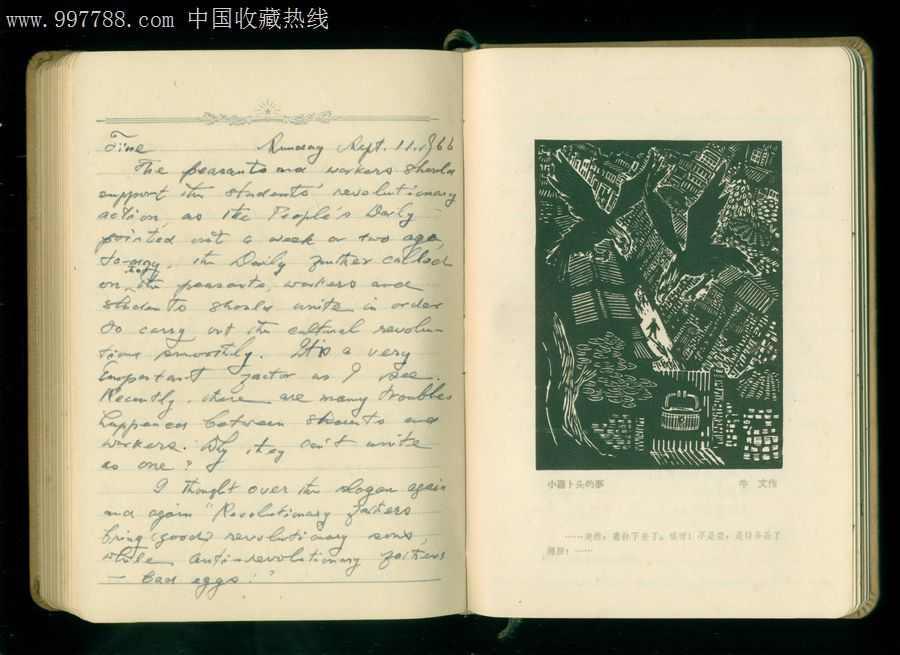 www.997788.com 中国收藏热线
Fine Sunday Sept. 11. 1966
The peasants and workers should
support the students' revolutionary
action, as the People's Daily
pointed out a week or two ago,
to-day, the Daily further called
on, the peasants, workers and
students should unite in order
to carry out the cultural revolu-
tions smoothly. It's a very
important factor as I see.
Recently, there are many troubles
happened between students and
workers. Why they can't unite
as one?
I thought over the slogan again
and again "Revolutionary fathers
bring (good) revolutionary sons,
while anti-revolutionary fathers
— bad eggs!"
小萝卜头的梦 牛 文作